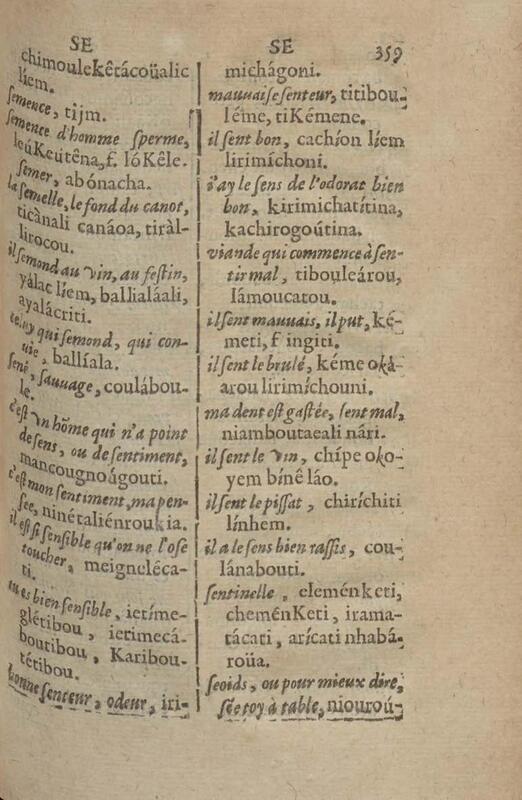 SE
chimoulekêtácoüalic
líem.
semence, tijm.
semence d'homme sperme,
leúKeutêna, f. lóKêle.
semer, abónacha.
la semelle, le fond du canot,
ticànali canáoa, tiràl-
lirocou.
il semond au vin, au festin,
yálac líem, ballialáali,
ayalácriti.
celuy qui semond, qui con-
uie, ballíala.
sené, sauuage, coulábou-
le.
c'est vn hõme qui n'a point
de sens, ou de sentiment,
mancougnoágouti.
c'est mon sentiment, ma pen-
sée, ninétaliénroukia.
il est si sensible qu'on ne l'ose
toucher, meigneléca-
ti.
tu es bien sensible, ietíme-
glétibou, ietimecá-
boutibou, Karibou-
tétibou.
bonne senteur, odeur, iri-
SE 359
michágoni.
mauuaise senteur, titibou-
léme, tiKémene.
il sent bon, cachíon líem
lirimíchoni.
i'ay le sens de l'odorat bien
bon, kirimichatítina,
kachirogoútina.
viande qui commence à sen-
tir mal, tibouleárou,
lámoucatou.
il sent mauuais, il put, ké-
meti, f ingiti.
il sent le brulé, kéme oká-
arou lirimíchouni.
ma dent est gastée, sent mal,
niamboutaeali nári.
il sent le vin, chípe oko-
yem bínê láo.
il sent le pissat, chiríchiti
línhem.
il a le sens bien rassis, cou-
lánabouti.
sentinelle, eleménketi,
cheménKeti, irama-
tácati, arícati nhabá-
roüa.
seoids, ou pour mieux dire,
sée toy à table, niouroú-